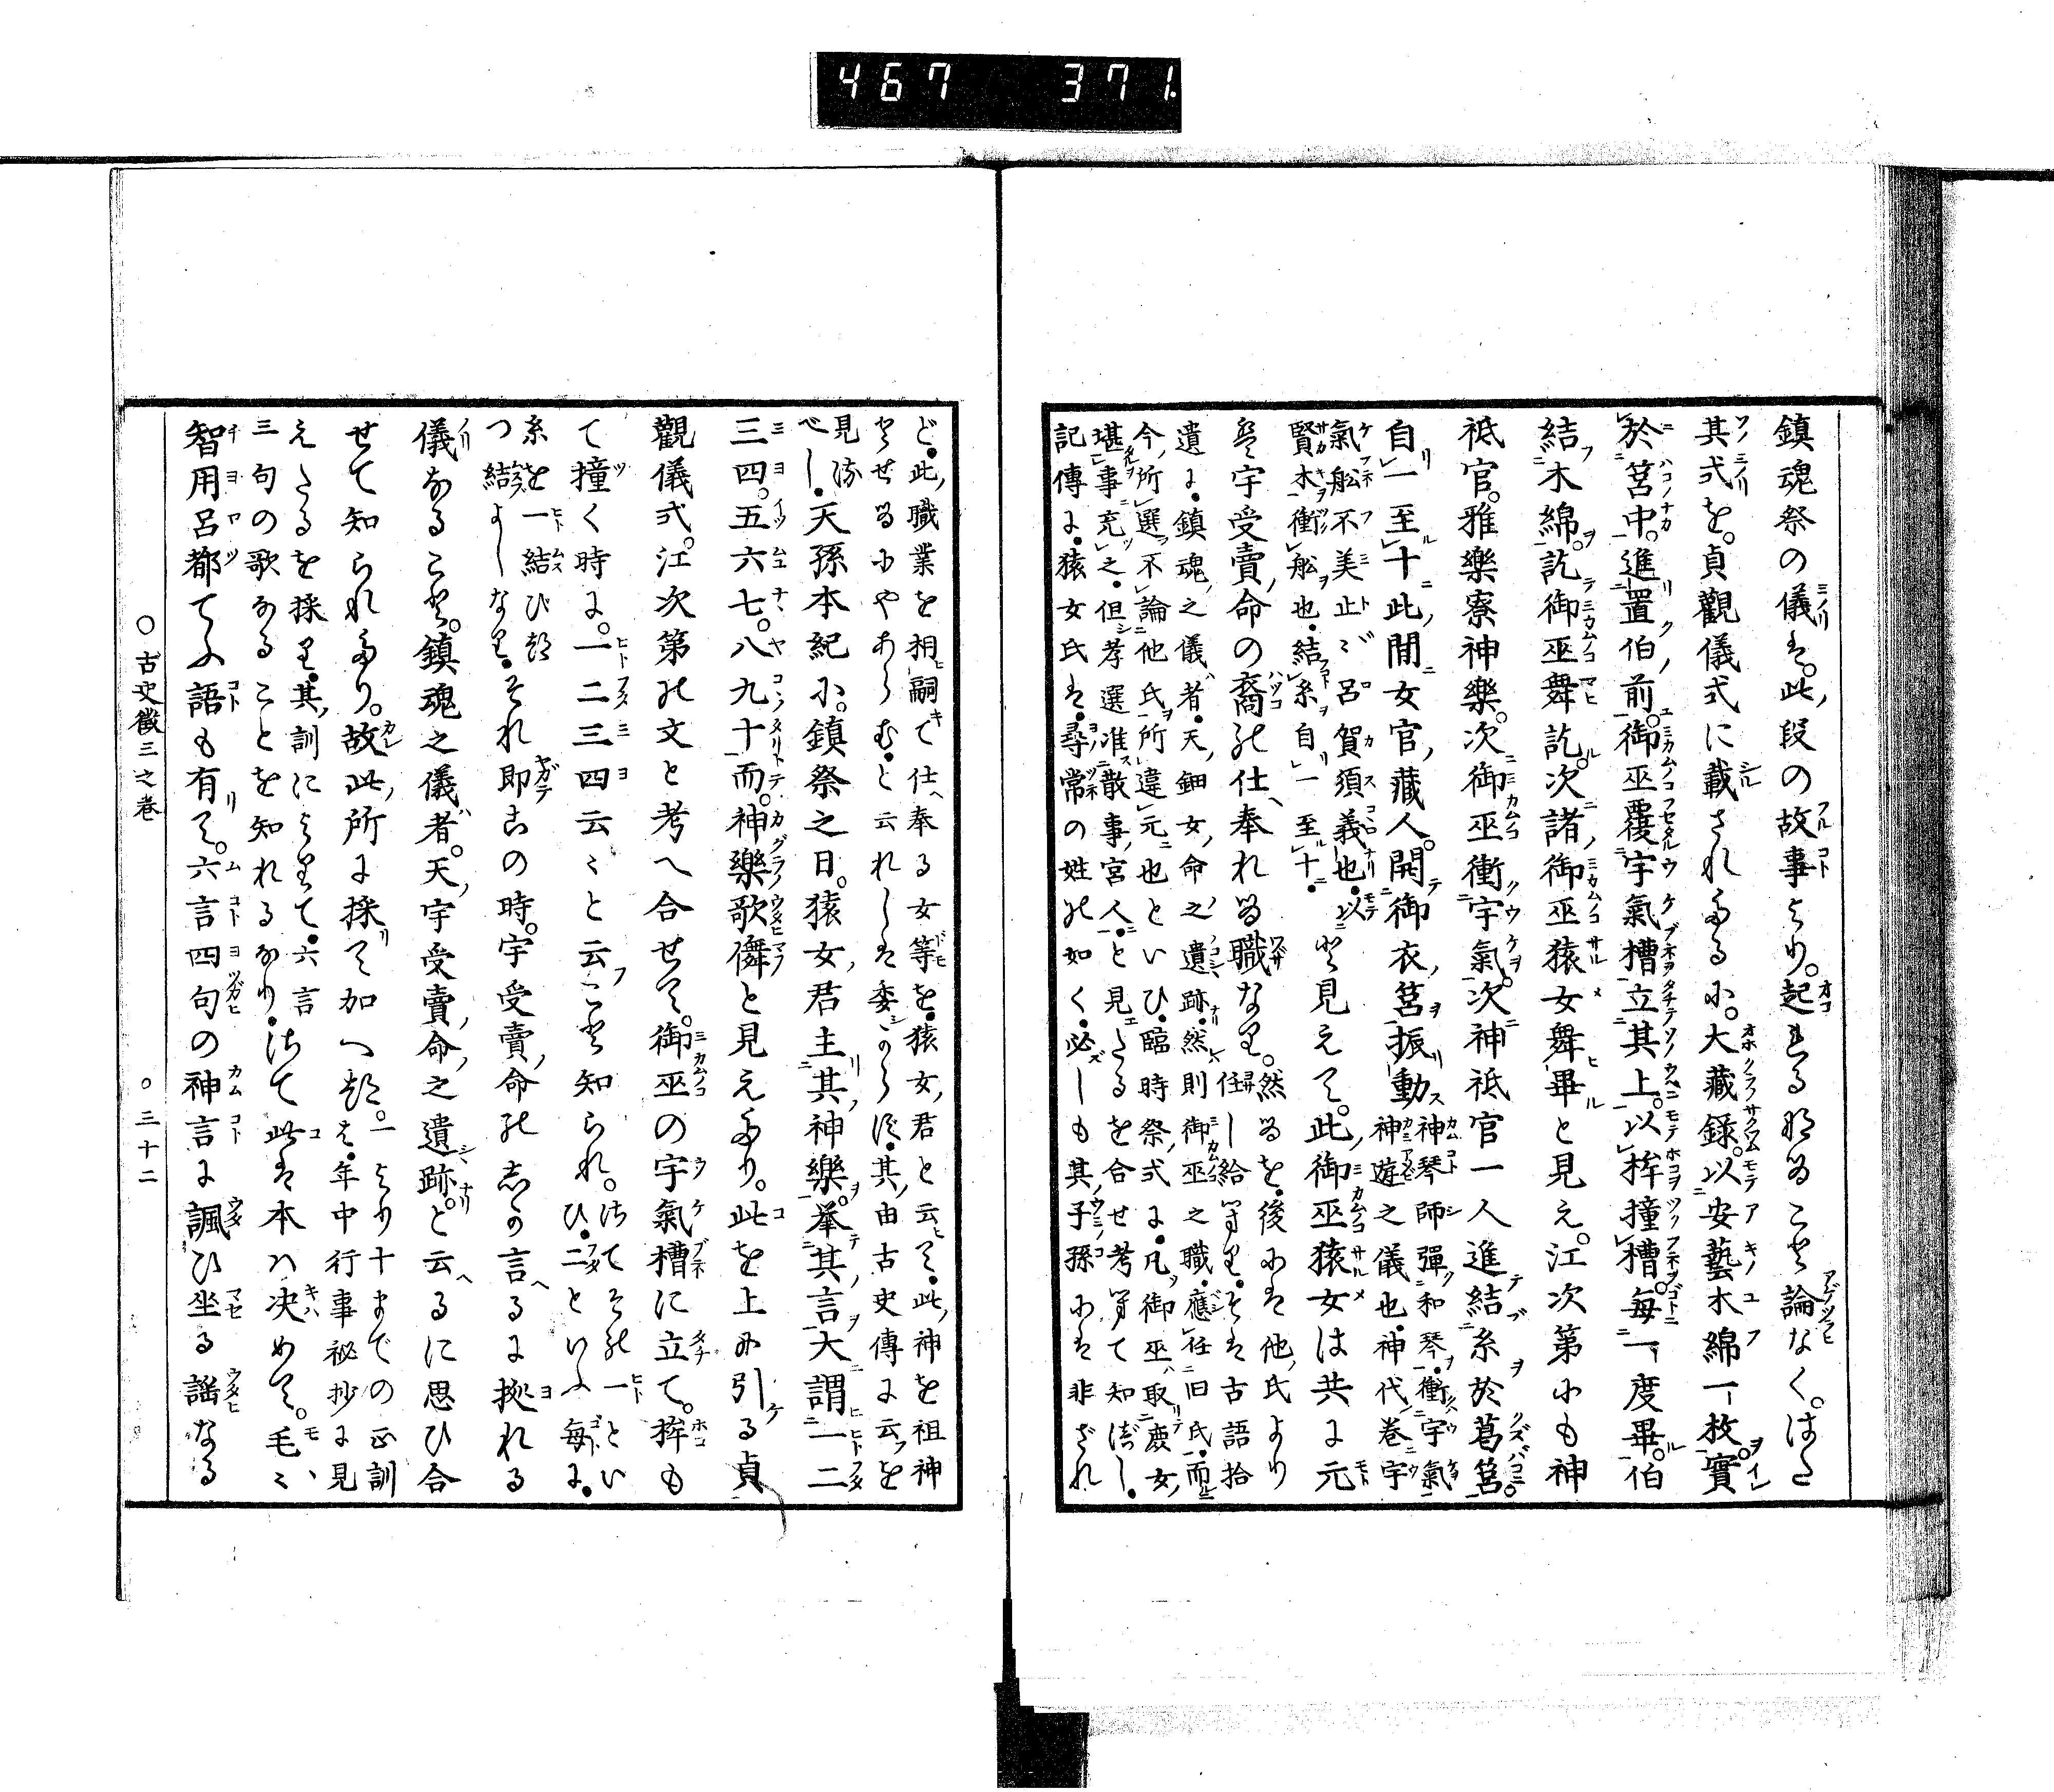 467 371.
鎮魂祭の儀は。此段の故事より。起れるなること論なく。はた
其式を。貞觀儀式に載されたるに。大藏錄。以安藝木綿一枚。實
於筥中。進置伯前。御巫覆宇氣槽。立其上。以桙撞槽。每一度畢。伯
結木綿。訖御巫舞訖。次諸御巫猿女舞畢と見え。江次第にも神
祇官。雅樂寮神樂。次御巫衝宇氣。次神祇官一人進結糸於葛筥。
自一至十。此間女官藏人。開御衣筥振動
神琴師彈和琴。衝宇氣
神遊之儀也。神代卷宇
氣舩不美止ゞ呂賀須義也。以
賢木衝舩也。結糸自一至十。
と見えて。此御巫猿女は共に元
と宇受賣命の裔の仕奉れる職なり。
然るを。後には他氏より
任し給へり。そは古語拾
遺に。鎮魂之儀者。天鈿女命之遺跡。然則御巫之職。應任旧氏。而
今所選不論他氏所遺元也といひ。臨時祭式に。凡御巫取庶女
堪事充之。但考選准散事宮人。と見えたるを合せ考へて知べし。
記傳に。猿女氏は。尋常の姓の如く。必しも其子孫には非ざれ
ど。此職業を相嗣て仕奉る女等を。猿女君と云て。此神を祖神
とせるにやあらむ。と云れしは委からず。其由古史傳に云を
見るべし。
天孫本紀に。鎮祭之日。猿女君主其神樂。擧其言大謂一二
三四。五六七。八九十而。神樂歌儛と見えたり。此を上に引る貞
觀儀式。江次第の文と考へ合せて。御巫の宇氣槽に立て。桙も
て撞く時に。一二三四云々と云こと知られ。
さてその一とい
ひ。二といふ每に。
糸を一結びづ
つ結よしなり。
それ即古の時。宇受賣命の志か言るに據れる
儀なること。鎮魂之儀者。天宇受賣命之遺跡。と云るに思ひ合
せて知られたり。故此所に採て加へつ。
一より十までの正訓
は。年中行事祕抄に見
えたるを採り。其訓によりて。六言
三句の歌なることを知れるなり。
さて此は本は決めて。毛々
智用呂都てふ語も有りて。六言四句の神言に諷ひ坐る謡なる
○古史徵三之卷
○三十二